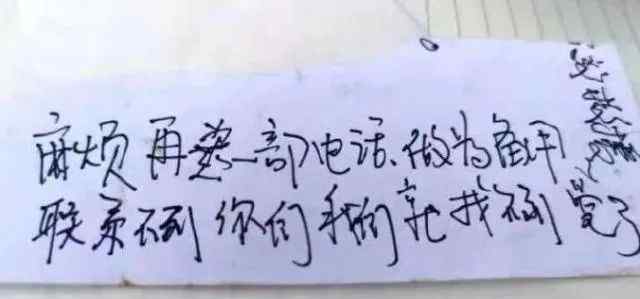 麻烦再一部电话、做为备用
联系不到你们我们就找不到